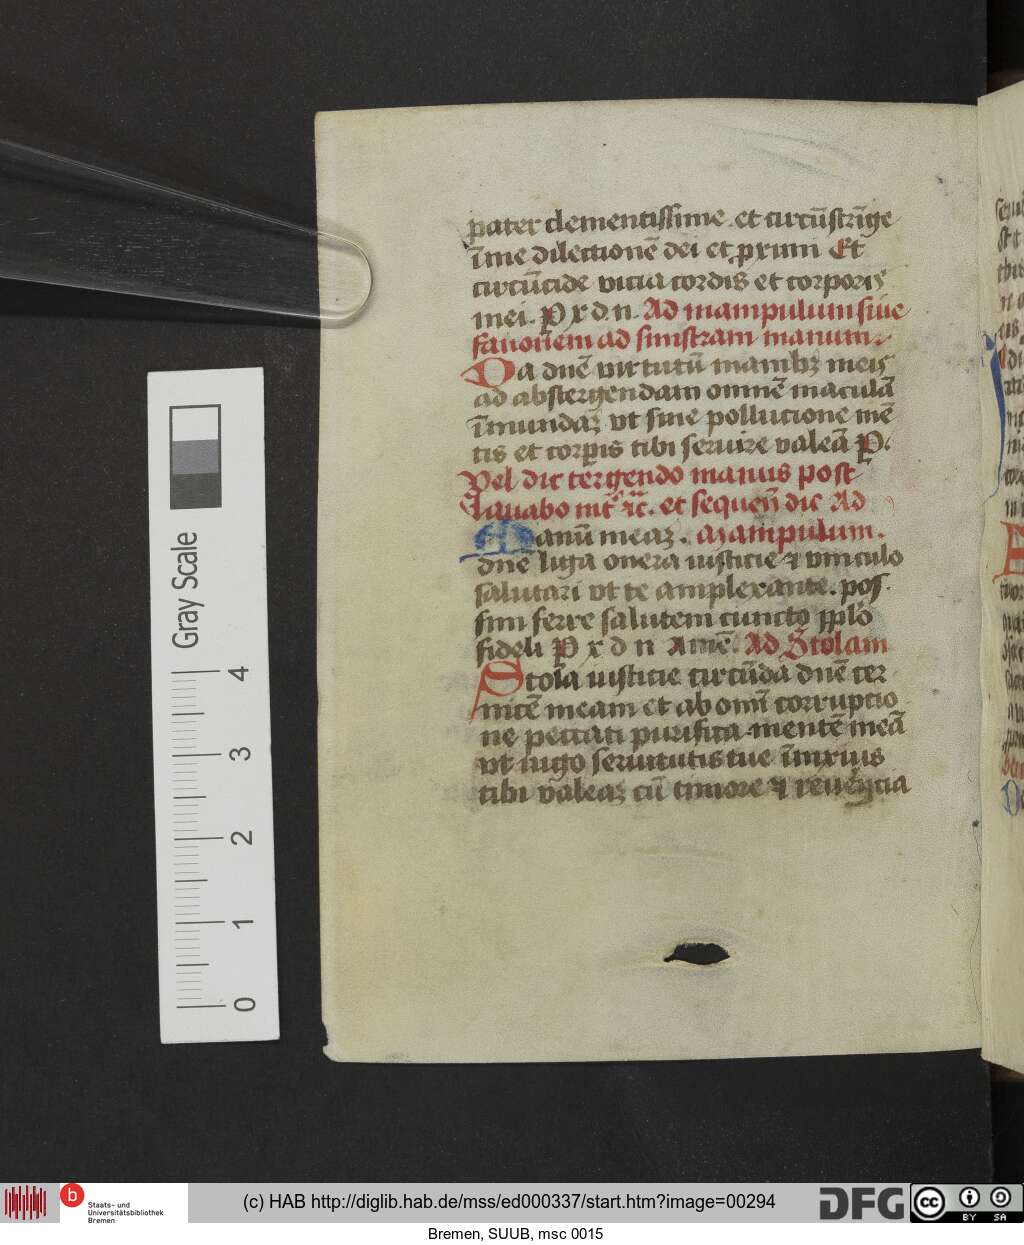 pater clementissime. et circūstrīge
ī me dilectionē dei et ꝓximi Et
circūcide vicia cordis et corporis
mei. P x d. n. Ad manipulum siue
fanonem ad sinistram manum.
Da dnē virtutū manibꝫ meis
ad abstergendam omnē maculā
īmundaꝫ vt sine pollucione mē
tis et corꝑis tibi seruire valeā P.
Vel dic tergendo manus post
Lauabo int̉ ⁊c̄. et sequen̄ dic Ad
Manū meaꝫ. manipulum.
dne liga onera iusticie ⁊ vinculo
salutari vt te amplexante. pos
sim ferre salutem cuncto pplo
fideli P x d n Amē. Ad Stolam
Stola iusticie circūda dnē cer
uicē meam et ab omī corruptio
ne peccati purifica mentē meā
vt iugo seruitutis tue īnixus
tibi valeaꝫ cū timore ⁊ reuēncia
Gray Scale
4
3
2
1
0
b Staats- und
Universitätsbibliothek
Bremen
(c) HAB http://diglib.hab.de/mss/ed000337/start.htm?image=00294
DFG
cc BY SA
Bremen, SUUB, msc 0015